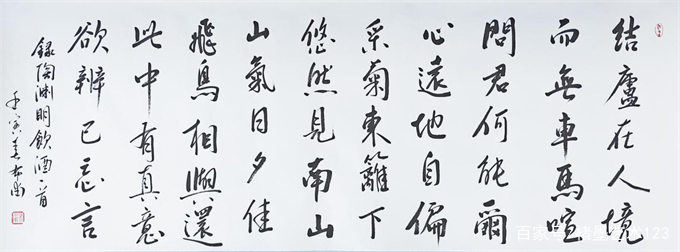 結廬在人境
而無車馬喧
問君何能爾
心遠地自偏
采菊東籬下
悠然見南山
山氣日夕佳
飛鳥相與還
此中有真意
欲辨已忘言
錄陶渊明飲酒一首
壬寅春
百家号